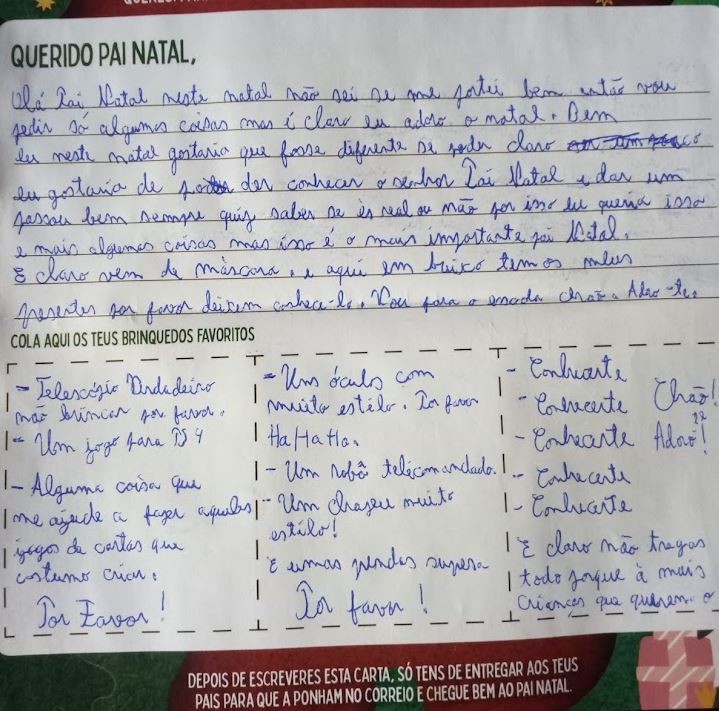 QUERIDO PAI NATAL,
Olá Pai Natal neste natal não sei se me portei bem então vou
pedir só algumas coisas mas é claro eu adoro o natal. Bem
eu neste natal gostaria que fosse diferente se poder claro
eu gostaria de poder conhecer o senhor Pai Natal e dar um
passou bem sempre quiz saber se és real ou não por isso eu queria isso
e mais algumas coisas mas isso é o mais importante pai Natal.
E claro vem de máscara. e aqui em baixo tem os meus
presentes por favor deixem conhece-lo. Vou para a escada chão a Adoro-te.
COLA AQUI OS TEUS BRINQUEDOS FAVORITOS
- Telescópio Verdadeiro
não brincar por favor.
- Um jogo para PS4
- Alguma coisa que
me ajude a fazer aqueles
jogos de cartas que
costumo criar.
Por Favor!
- Uns óculos com
muito estilo. Por favor
Ha Ha Ha.
- Um robô telecomandado.
- Um chapeu muito
estilo!
E umas prendas supresa
Por favor!
- Conhecerte
- Conhecerte Chão!
- Conhecerte Adoro!
- Conhecerte
- Conhecerte
E claro não tragas
todo porque à mais
crianças que querem o
DEPOIS DE ESCREVERES ESTA CARTA, SÓ TENS DE ENTREGAR AOS TEUS
PAIS PARA QUE A PONHAM NO CORREIO E CHEGUE BEM AO PAI NATAL.